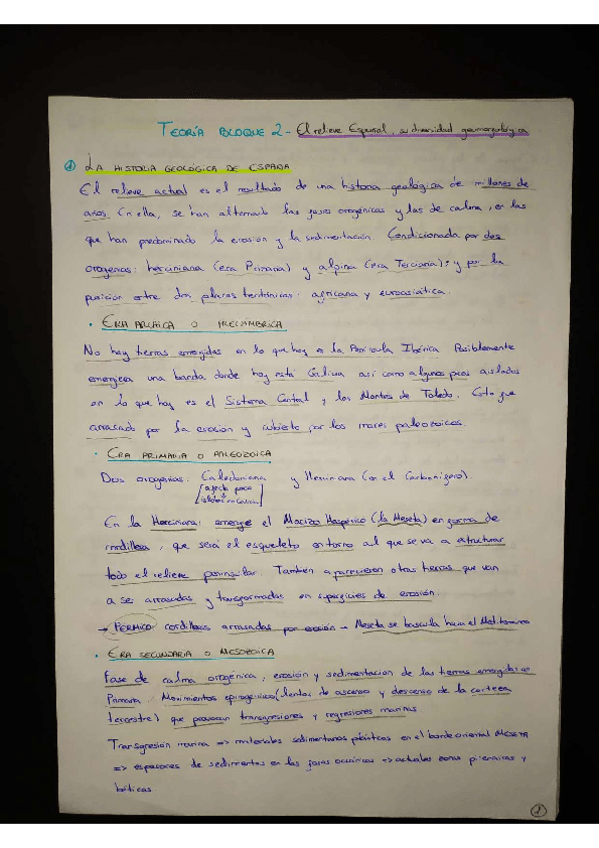 TEORÍA BLOQUE 2 - El relieve Español, su diversidad geomorfológica
① LA HISTORIA GEOLÓGICA DE ESPAÑA
El relieve actual es el resultado de una historia geológica de millones de
años. En ella, se han alternado las fases orogénicas y las de calma, en las
que han predominado la erosión y la sedimentación. Condicionada por dos
orogenias: herciniana (era Primaria) y alpina (era Terciaria); y por la
posición entre dos placas tectónicas: africana y euroasiática.
· ERA ARCAICA O PRECÁMBRICA
No hay tierras emergidas en lo que hoy es la Península Ibérica. Posiblemente
emergiera una banda donde hoy está Galicia así como algunos picos aislados
en lo que hoy es el Sistema Central y los Montes de Toledo. Esto fue
arrasado por la erosión y cubierto por los mares paleozoicos.
· ERA PRIMARIA O PALEOZOICA
Dos orogenias: Caledoniana y Herciniana (en el Carbonífero).
[afecta poco
En la Herciniana: emerge el Macizo Hespérico (la Meseta) en forma de
rodillesa, que será el esqueleto en torno al que se va a estructurar
todo el relieve peninsular. También aparecieron otras tierras que van
a ser arrasadas y transformadas en superficies de erosión.
→ PÉRMICO cordilleras arrasadas por erosión - Meseta se bascula hacia el Mediterráneo
· ERA SECUNDARIA O MESOZOICA
Fase de calma orogénica, erosión y sedimentación de las tierras emergidas en
Primaria. Movimientos epirogénicos (lentos de ascenso y descenso de la corteza
terrestre) que provocan transgresiones y regresiones marinas.
Transgresión marina => materiales sedimentarios plásticos en el borde oriental MESETA
=> espesores de sedimentos en las fosas oceánicas => actuales zonas pirenaicas y
béticas.
1